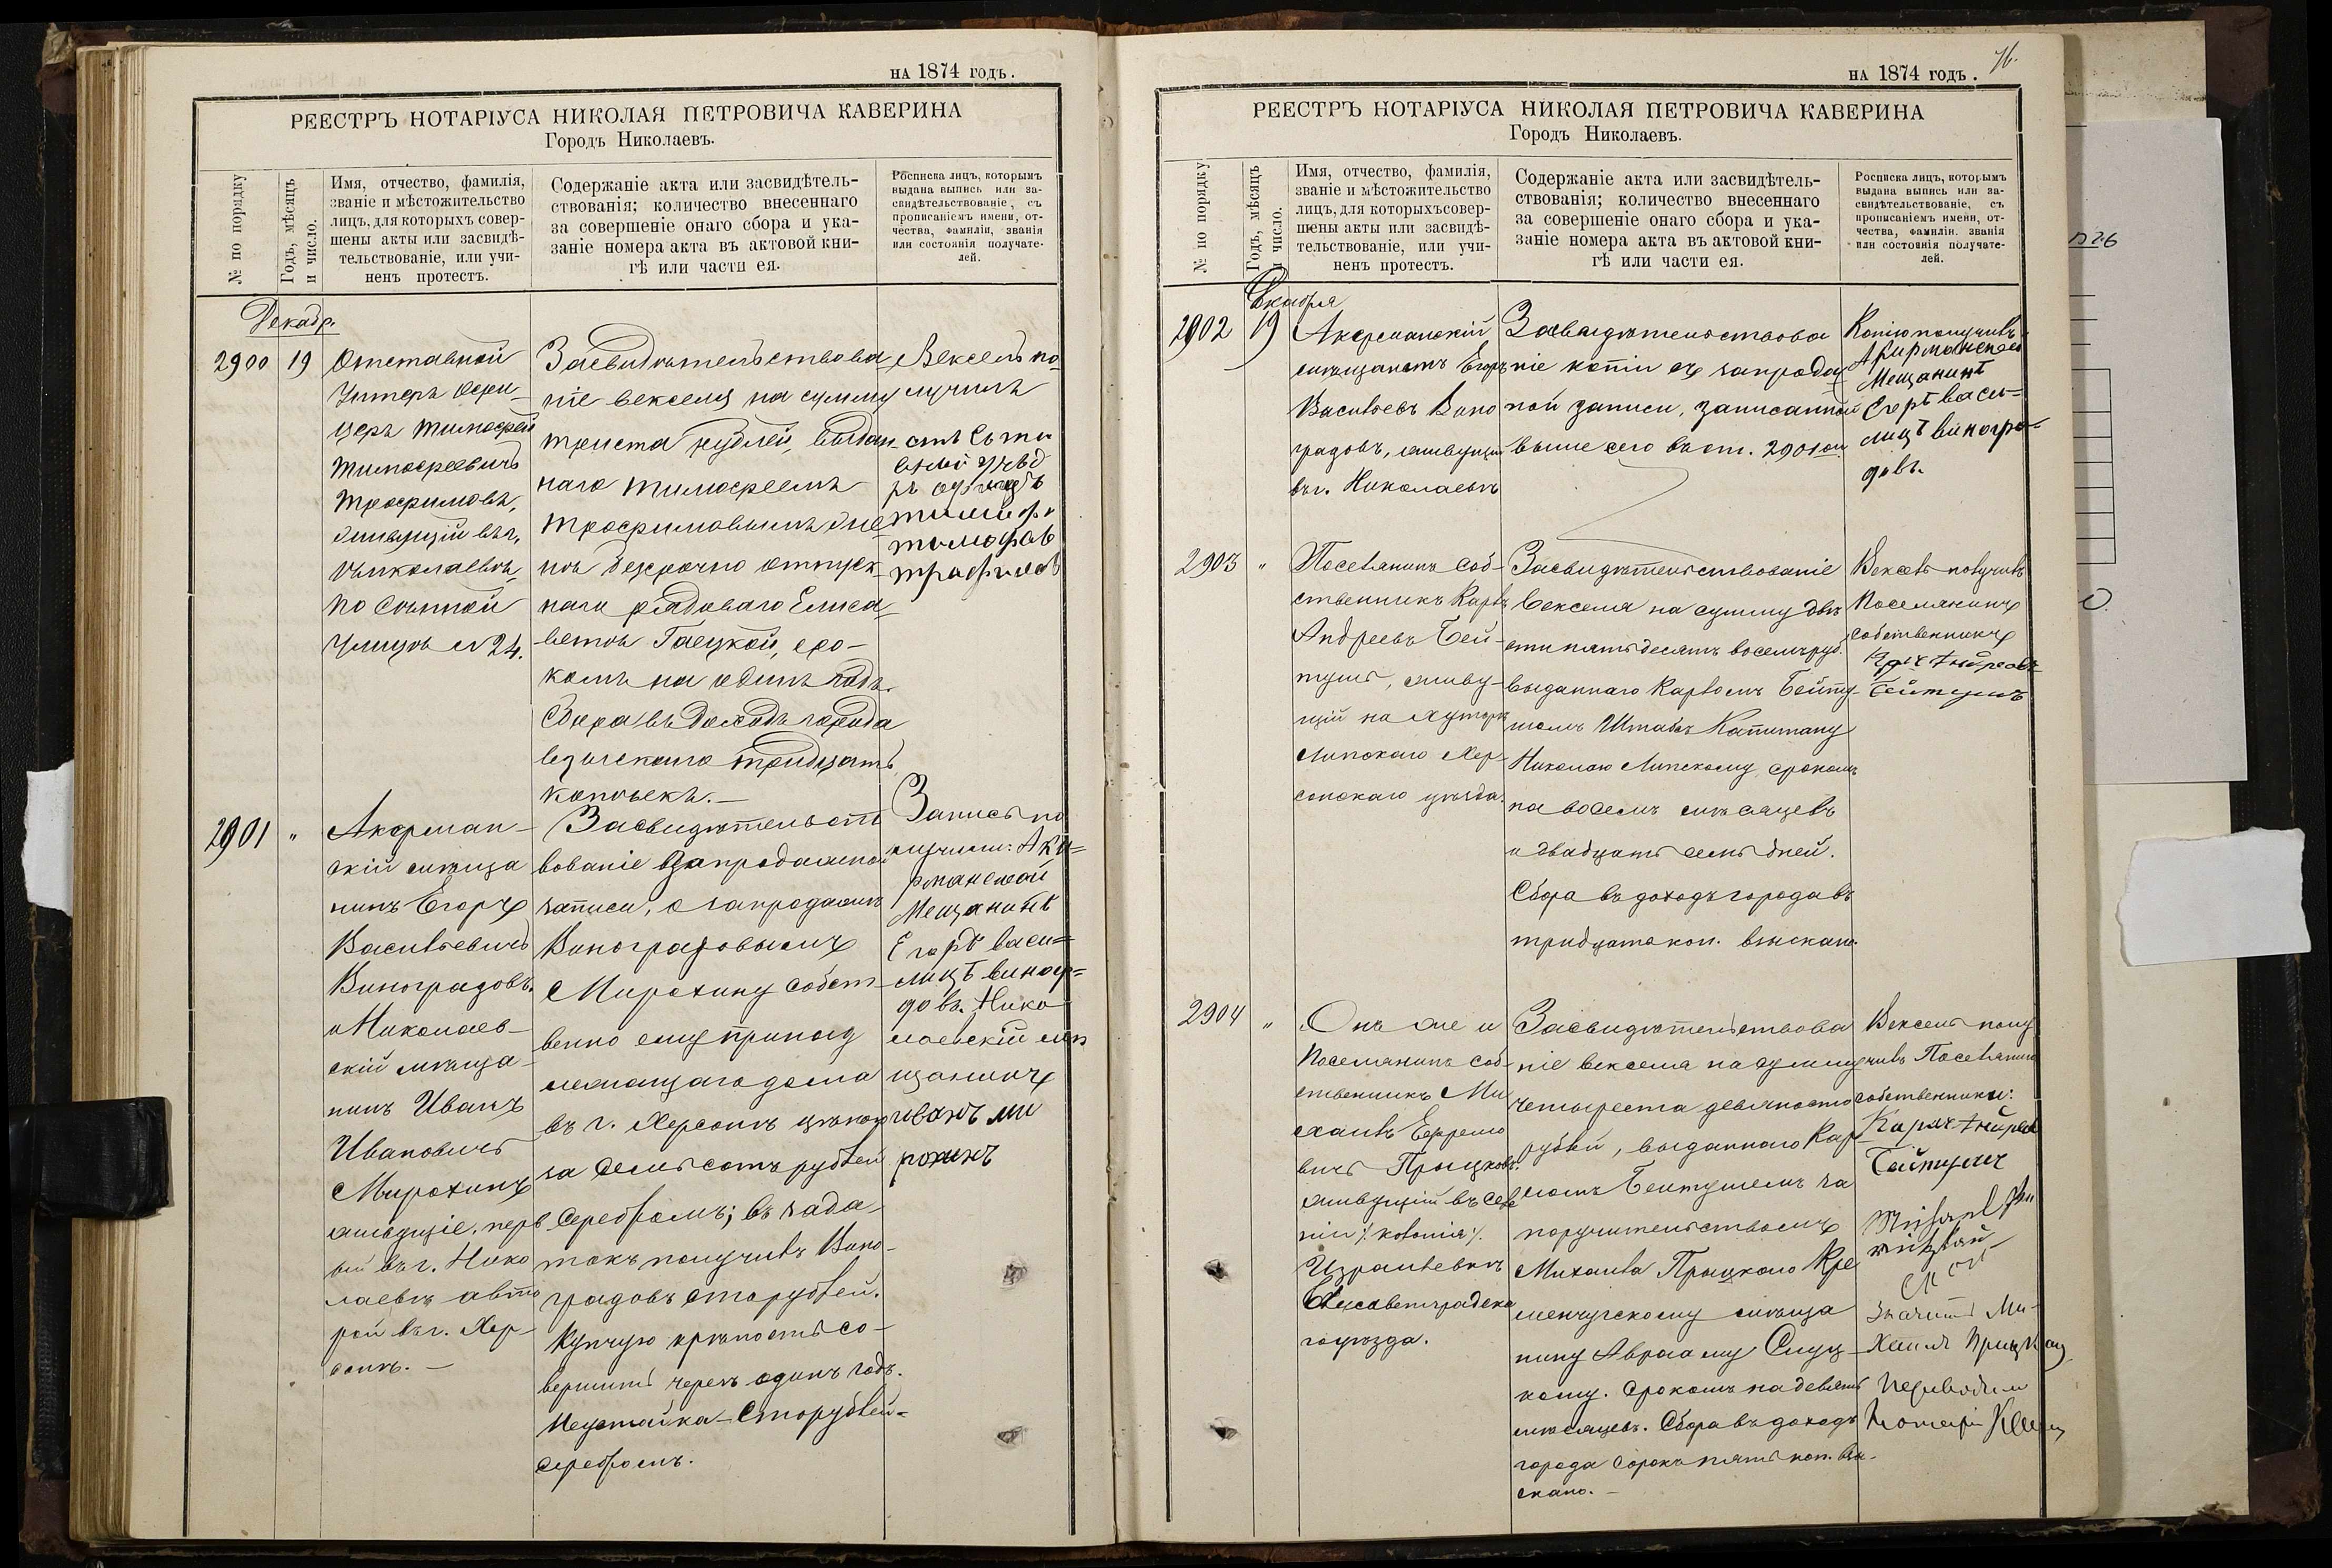 на 1874 годъ.
РЕЕСТРЪ НОТАРІУСА НИКОЛАЯ ПЕТРОВИЧА КАВЕРИНА
Городъ Николаевъ.
№ по порядку
Годъ, мѣсяцъ
и число.
Имя, отчество, фамилія,
званіе и мѣстожительство
лицъ, для которыхъ совер-
шены акты или засвидѣ-
тельствованіе, или учи-
ненъ протестъ.
Содержаніе акта или засвидѣтель-
ствованія; количество внесеннаго
за совершеніе онаго сбора и ука-
заніе номера акта въ актовой кни-
гѣ или части ея.
Росписка лицъ, которымъ
выдана выпись или за-
свидѣтельствованіе, съ
прописаніемъ имени, от-
чества, фамиліи, званія
или состоянія получате-
лей.
Декабр.
2900
19
Отставной
Унтеръ Офи-
церъ Тимофей
Тимофеевичъ
Трофимовъ,
живущій въ г.
Николаевѣ,
по Сѣнной
улицѣ № 24.
Засвидѣтельствова-
ніе векселя на сумму
триста рублей, выдан-
наго Тимофеемъ
Трофимовымъ же-
нѣ безсрочно отпуск-
наго рядоваго Елиса-
ветѣ Гаецкой, сро-
комъ на одинъ годъ.
Сбора въ доходъ города
взыскано тридцать
копѣекъ.—
Вексель по-
лучилъ
2901
"
Акерман-
скій мѣща
нинъ Егоръ
Васильевичъ
Виноградовъ.
и Николаев-
скій мѣща-
нинъ Иванъ
Ивановичъ
Мирохинъ
живущіе, перв
ый въ г. Нико
лаевѣ а вто
рой въ г. Хер-
сонѣ.—
Засвидѣтельст
вованіе запродажной
записи, о запродажѣ
Виноградовымъ
Мирохину собст-
венно ему принад
лежащаго дома
въ г. Херсонѣ цѣною
за семьсотъ рублей
серебромъ; въ зада-
токъ получилъ Вино-
градовъ сто рублей.
Купчую крѣпость со-
вершить черезъ одинъ годъ.
Неустойка—сто рублей=
серебромъ.
Запись по
лучили: Аке=
рманской
Мещанинъ
Егоръ васи=
личъ виногр=
довъ. Нико
лаевскій мѣ
щанинъ
иванъ ми
рохинъ
на 1874 годъ.
76.
РЕЕСТРЪ НОТАРІУСА НИКОЛАЯ ПЕТРОВИЧА КАВЕРИНА
Городъ Николаевъ.
№ по порядку
Годъ, мѣсяцъ
и число.
Имя, отчество, фамилія,
званіе и мѣстожительство
лицъ, для которыхъ совер-
шены акты или засвидѣ-
тельствованіе, или учи-
ненъ протестъ.
Содержаніе акта или засвидѣтель-
ствованія; количество внесеннаго
за совершеніе онаго сбора и ука-
заніе номера акта въ актовой кни-
гѣ или части ея.
Росписка лицъ, которымъ
выдана выпись или за-
свидѣтельствованіе, съ
прописаніемъ имени, от-
чества, фамиліи, званія
или состоянія получате-
лей.
Декабря
2902
19
Акерманскій
мѣщанинъ Егоръ
Васильевъ Вино
градовъ, живущій
въ г. Николаевѣ
Засвидѣтельствова
ніе копіи съ запродаж
ной записи, записанной
выше сего въ ст. 2901ой
Копію получилъ
Акирманской
Мещанинъ
Егоръ васи=
личъ виногра=
довъ.
2903
"
Поселянинъ соб-
ственникъ Карлъ
Андреевъ Бей-
тушъ, живу-
щій на хуторѣ
Липскаго Хер-
сонскаго уѣзда.
Засвидѣтельствованіе
векселя на сумму двѣ
сти пятьдесятъ восемь руб.
выданнаго Карломъ Бейту-
шемъ Штабсъ Капитану
Николаю Липскому, срокомъ
на восемь мѣсяцевъ
и двадцать семь дней.
Сбора въ доходъ города въ
тридцать коп. взыскано.
Вексель получилъ
Поселянинъ
собственникъ
2904
"
Онъ же и
Поселянинъ соб-
ственникъ Ми
хаилъ Ефремо
вичъ Прицковъ.
живущій въ селе
ніи /. колонія ./
Израилевкѣ
Елисаветградска
го уѣзда.
Засвидѣтельствова
ніе векселя на сумму
четыреста девяносто
рублей, выданнаго Кар-
ломъ Бейтушемъ за
поручительствомъ
Михаила Прицкаго Кре
менчугскому мѣща
нину Абраму Слуц-
кому. Срокомъ на девять
мѣсяцевъ. Сбора въ доходъ
города сорокъ пять коп. взы-
скано.—
Вексель полу
чилъ Поселянинъ
собственники:
значитъ Ми-
хаилъ Прицкай
переводилъ